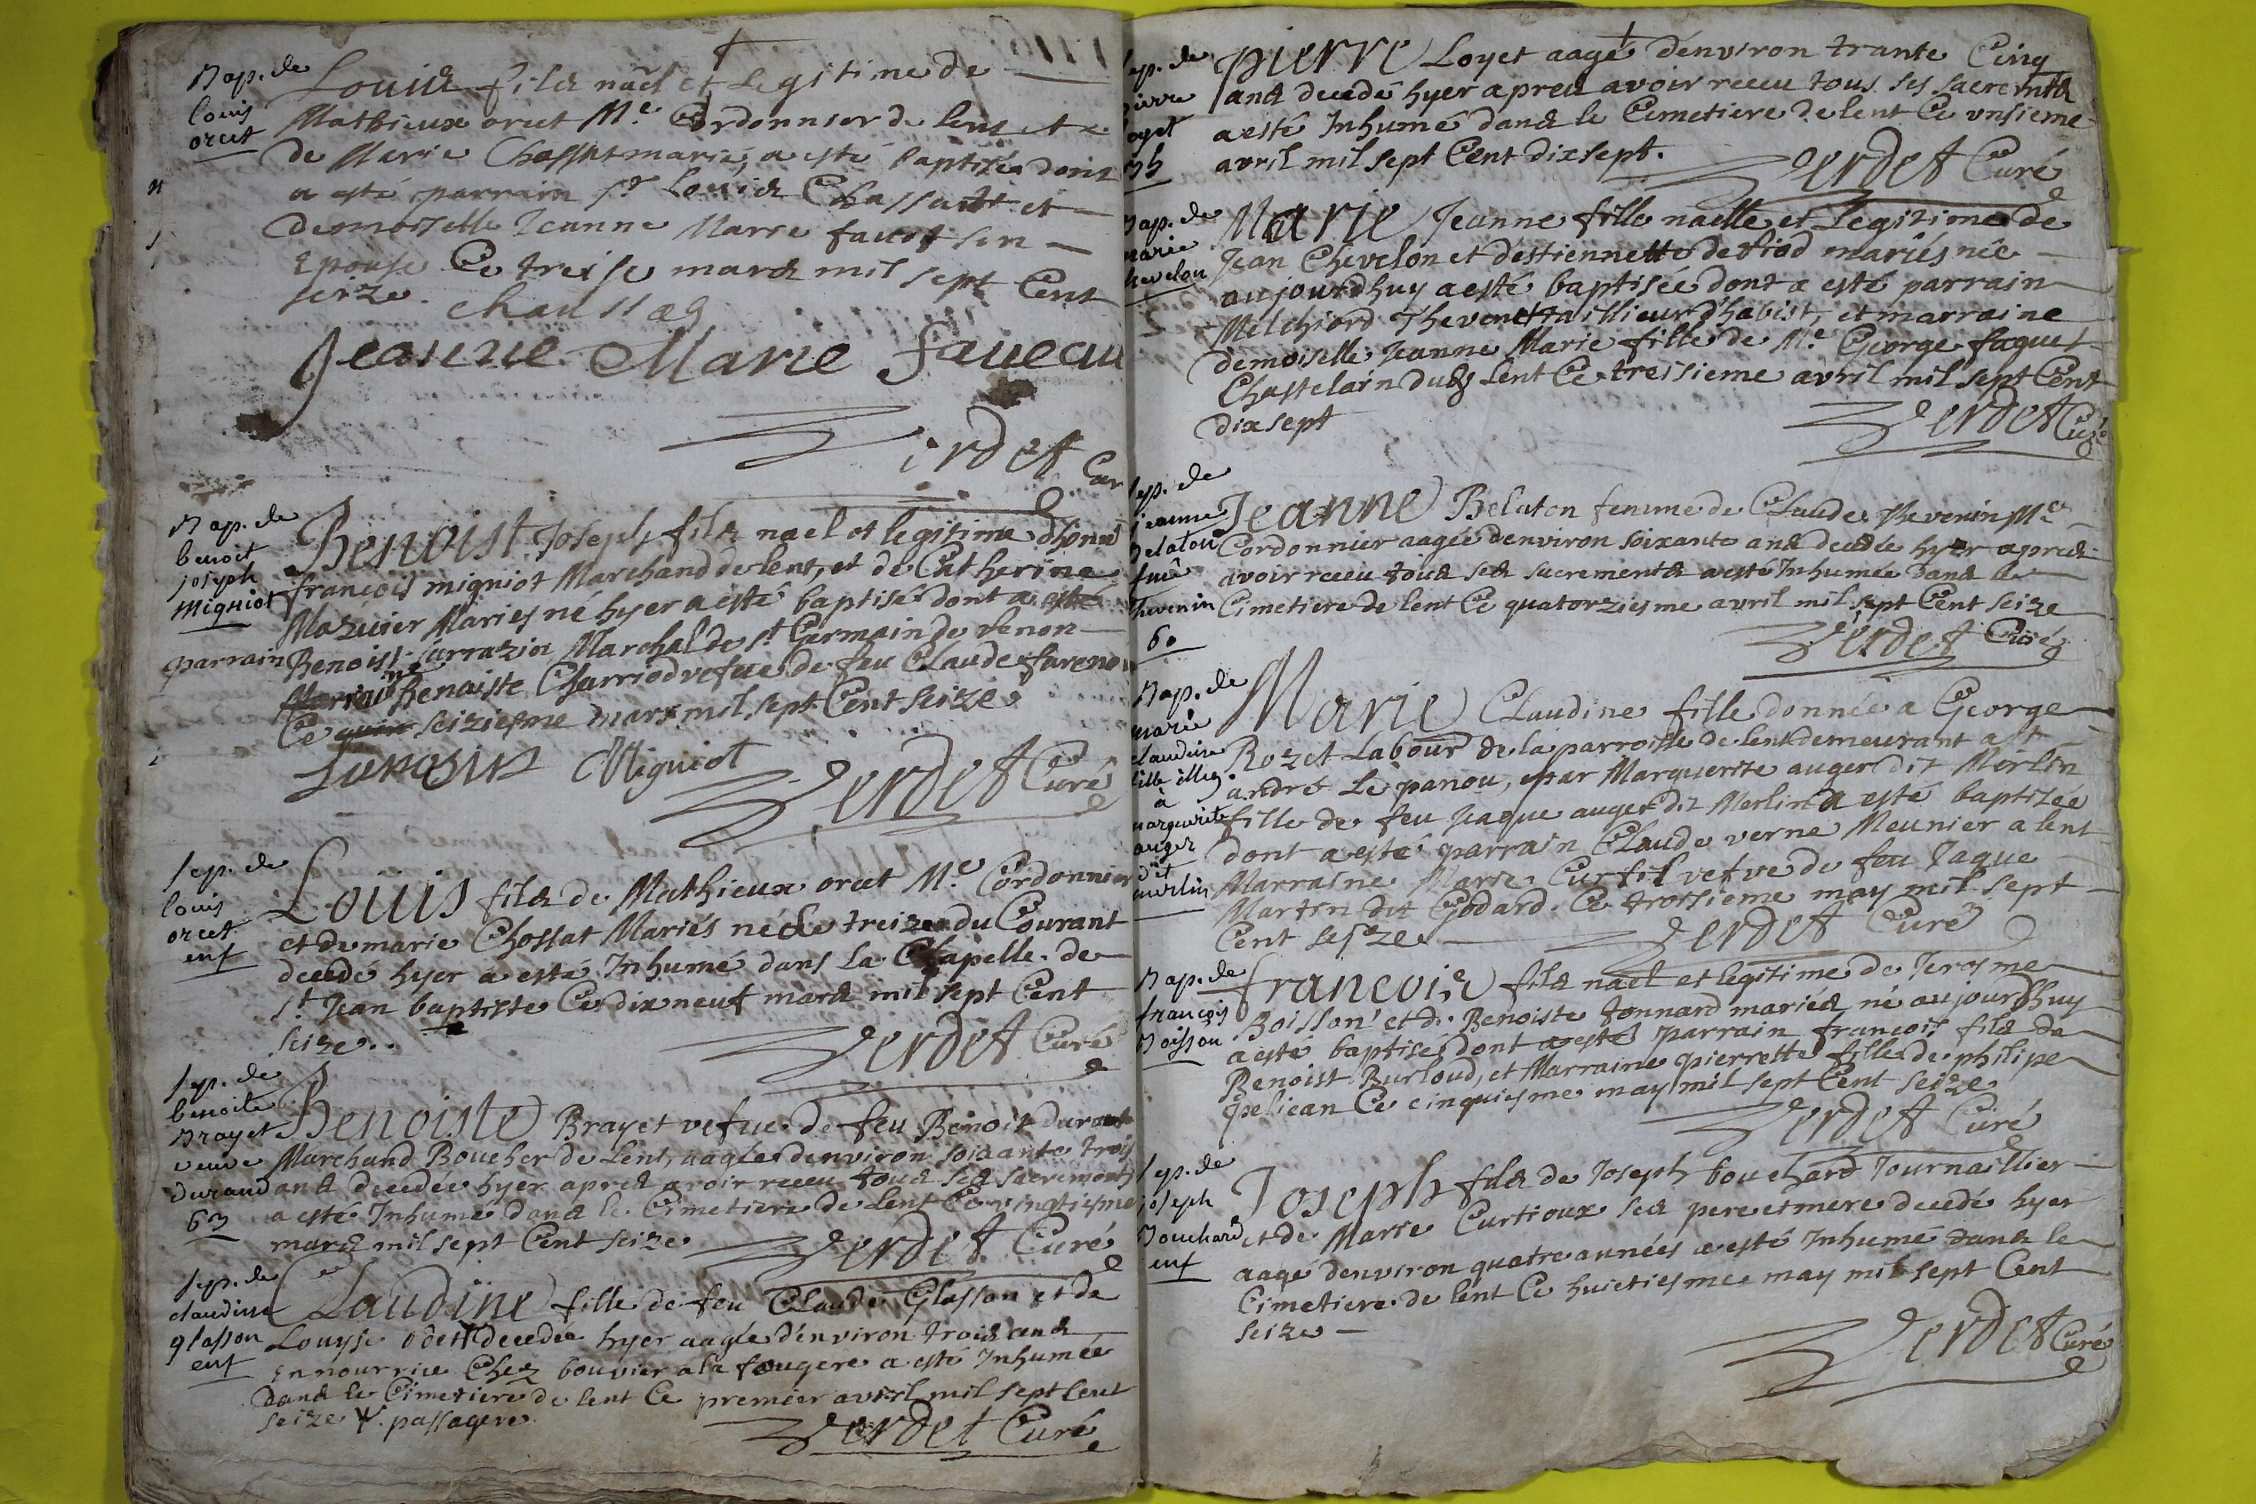 Bap. de
louis
orcet
Louis fils nael et Legitime de
Mathieux orcet Me Cordonnier de lent et
de Marie Chossat mariés, a esté baptisé dont
a esté parrain sr Louis Chassant et
demoiselle Jeanne Marie favot son
Epouse Ce treise mars mil sept Cent
seize.
Jeanne Marie faveau
Verdet Cur
Bap. de
benoit
joseph
Migniot
Benoist Joseph fils nael et legitime d'honet
françois migniot Marchand de lent, et de Catherine
Mazuier Mariés né hyer a esté baptisé dont a esté
parrain Benoist Sarrazin Marchal de st Germain de Renon
Benoiste Charriod vefue de feu Claude
Ce seiziesme mars mil sept Cent seize
Migniot Verdet Curé
sep. de
louis
orcet
enf
Loüis fils de Mathieux orcet Me Cordonnier
et de marie Chossat Mariés né le treize du Courant
decedé hyer a esté Inhumé dans La Chapelle de
st Jean baptiste Ce dix neuf mars mil sept Cent
seize.
Verdet Curé
sep. de
benoite
Brayet
veuve
Durand
63
Benoiste Brayet vefue de feu Benoit durant
Marchand Boucher de Lent, aagée denviron soixante trois
ans decedée hyer apres avoir receu tous ses sacrements
a esté Inhumé dans le Cimetiere de Lent Ce vingtiesme
mars mil sept Cent seize
Verdet Curé
sep. de
claudine
glasson
enf
Claudine fille de feu Claude Glasson et de
Louyse odet decedée hyer aagée d'environ trois ans
en nourrice Chez bouvier a la fougere a esté Inhumée
dans le Cimetiere de lent Ce premier avril mil sept Cent
seize passagere
Verdet Curé
sep. de
pierre
loyet
35
Pierre Loyet aagé d'environ trante Cinq
ans decedé hyer apres avoir receu tous ses sacremts
a esté Inhumé dans le Cemetiere de lent Ce unsieme
avril mil sept Cent dixsept.
Verdet Curé
Bap. de
marie
chevelon
Marie Jeanne fille naelle et Legitime de
Jean Chevelon et d'estiennette mariés née
aujourdhuy a esté baptisée dont a esté parrain
Melchiord Thevenet taillieur d'habist, et marraine
demoiselle Jeanne Marie fille de Me George faguet
Chastelain dudt Lent Ce treisieme avril mil sept Cent
dixsept
Verdet Curé
sep. de
jeanne
Belaton
fme
thevenin
60
Jeanne Belaton femme de Claude Thevenin Me
Cordonnier aagée denviron soixante ans decedée hyer apres
avoir receu tous ses sacrements a esté Inhumée dans le
Cimetiere de lent Ce quatorziesme avril mil sept Cent seize
Verdet Curé
Bap. de
marie
claudine
fille illeg.
à
marguerite
auger
dit
merlin
Marie Claudine fille donnée a George
Rozet Labour de la parroisse de lent demeurant a st
andré Le panou, par Marguerite auger dit Merlin
fille de feu Jaque auger dit Merlin a esté baptisée
dont a esté parrain Claude verne Meunier a lent
Marraine Marie Curtil vefve de feu Jaque
Martin dit Godard Ce troisieme may mil sept
Cent seize
Verdet Curé
Bap. de
françois
Boisson
françois fils nael et legitime de Jerosme
Boisson et de Benoiste Jonnard mariés né aujourd'huy
a esté baptisé dont a esté parrain françois fils de
Benoist Burloud, et Marraine pierrette fille de philipe
pelican Ce cinquiesme may mil sept Cent seize
Verdet Curé
sep. de
joseph
Bouchard
enf
Joseph fils de Joseph bouchard Journaillier
et de Marie Curtioux ses pere et mere decedé hyer
aagé d'environ quatre années a esté Inhumé dans le
Cimetiere de lent Ce huictiesme may mil sept Cent
seize
Verdet Curé